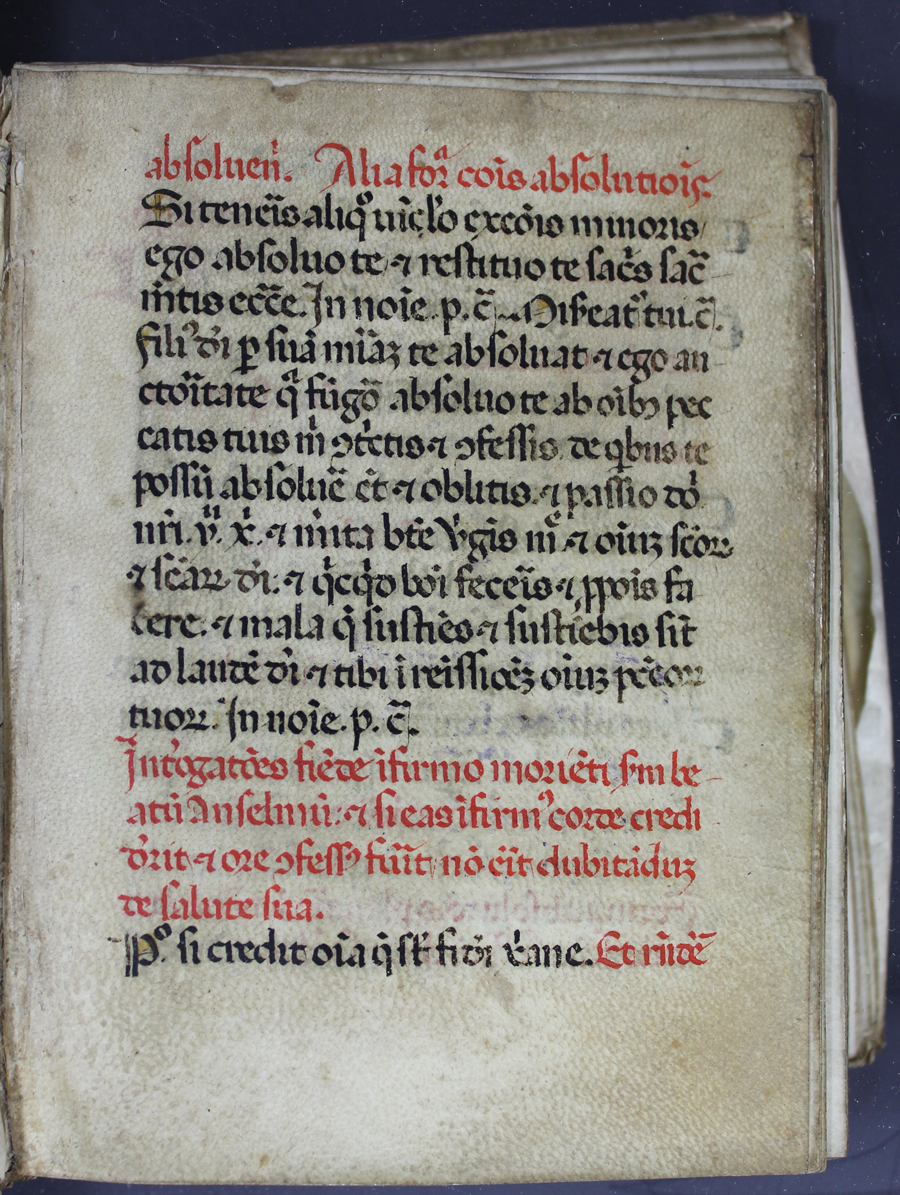 absoluen̄. Alia for̄ cōis absolutiōis.
Si teneris aliq̊ uīclo excōis minoris
ego absoluo te ⁊ restituo te sacrīs sac̄
m̄tis ecc̄e. In noīe .p. c̄. Mis̄eat᷑ tui. c̄.
fili᷒ dī ꝑ suā mīaꝫ te absoluat ⁊ ego au
ctoītate q̄ fūgor̄ absoluo te ab oībꝫ pec
catis tuis m̄ ꝯtrītis ⁊ ꝯfessis de qͥbus te
possū absoluē ēt ⁊ oblitis. ⁊ passio dō
nr̄i. ẏ. ẋ. ⁊ m̄ita btē v̓gis m̄ ⁊ oīuꝫ scōꝝ
⁊ scāꝝ dī. ⁊ qͥcqͥd boī feceīs ⁊ ꝓpōis fa
cere. ⁊ mala q̄ sustīes ⁊ sustīebis sīt
ad laudē dī ⁊ tibi ī remīssiōeꝫ oīuꝫ pēccōꝝ
tuoꝝ. In noīe .p. c̄.
Int̓ogatōes fiēde īfirmo moriēti s̄m be
atū Anselmū. ⁊ si eas īfirm᷒ corde credi
d̓it ⁊ ore ꝯfess᷒ fūit nō eīt dubitāduꝫ
de salute sua.
Pͦ. si credit oīa q̄ st̄ fidī xāne. Et rn̄dē